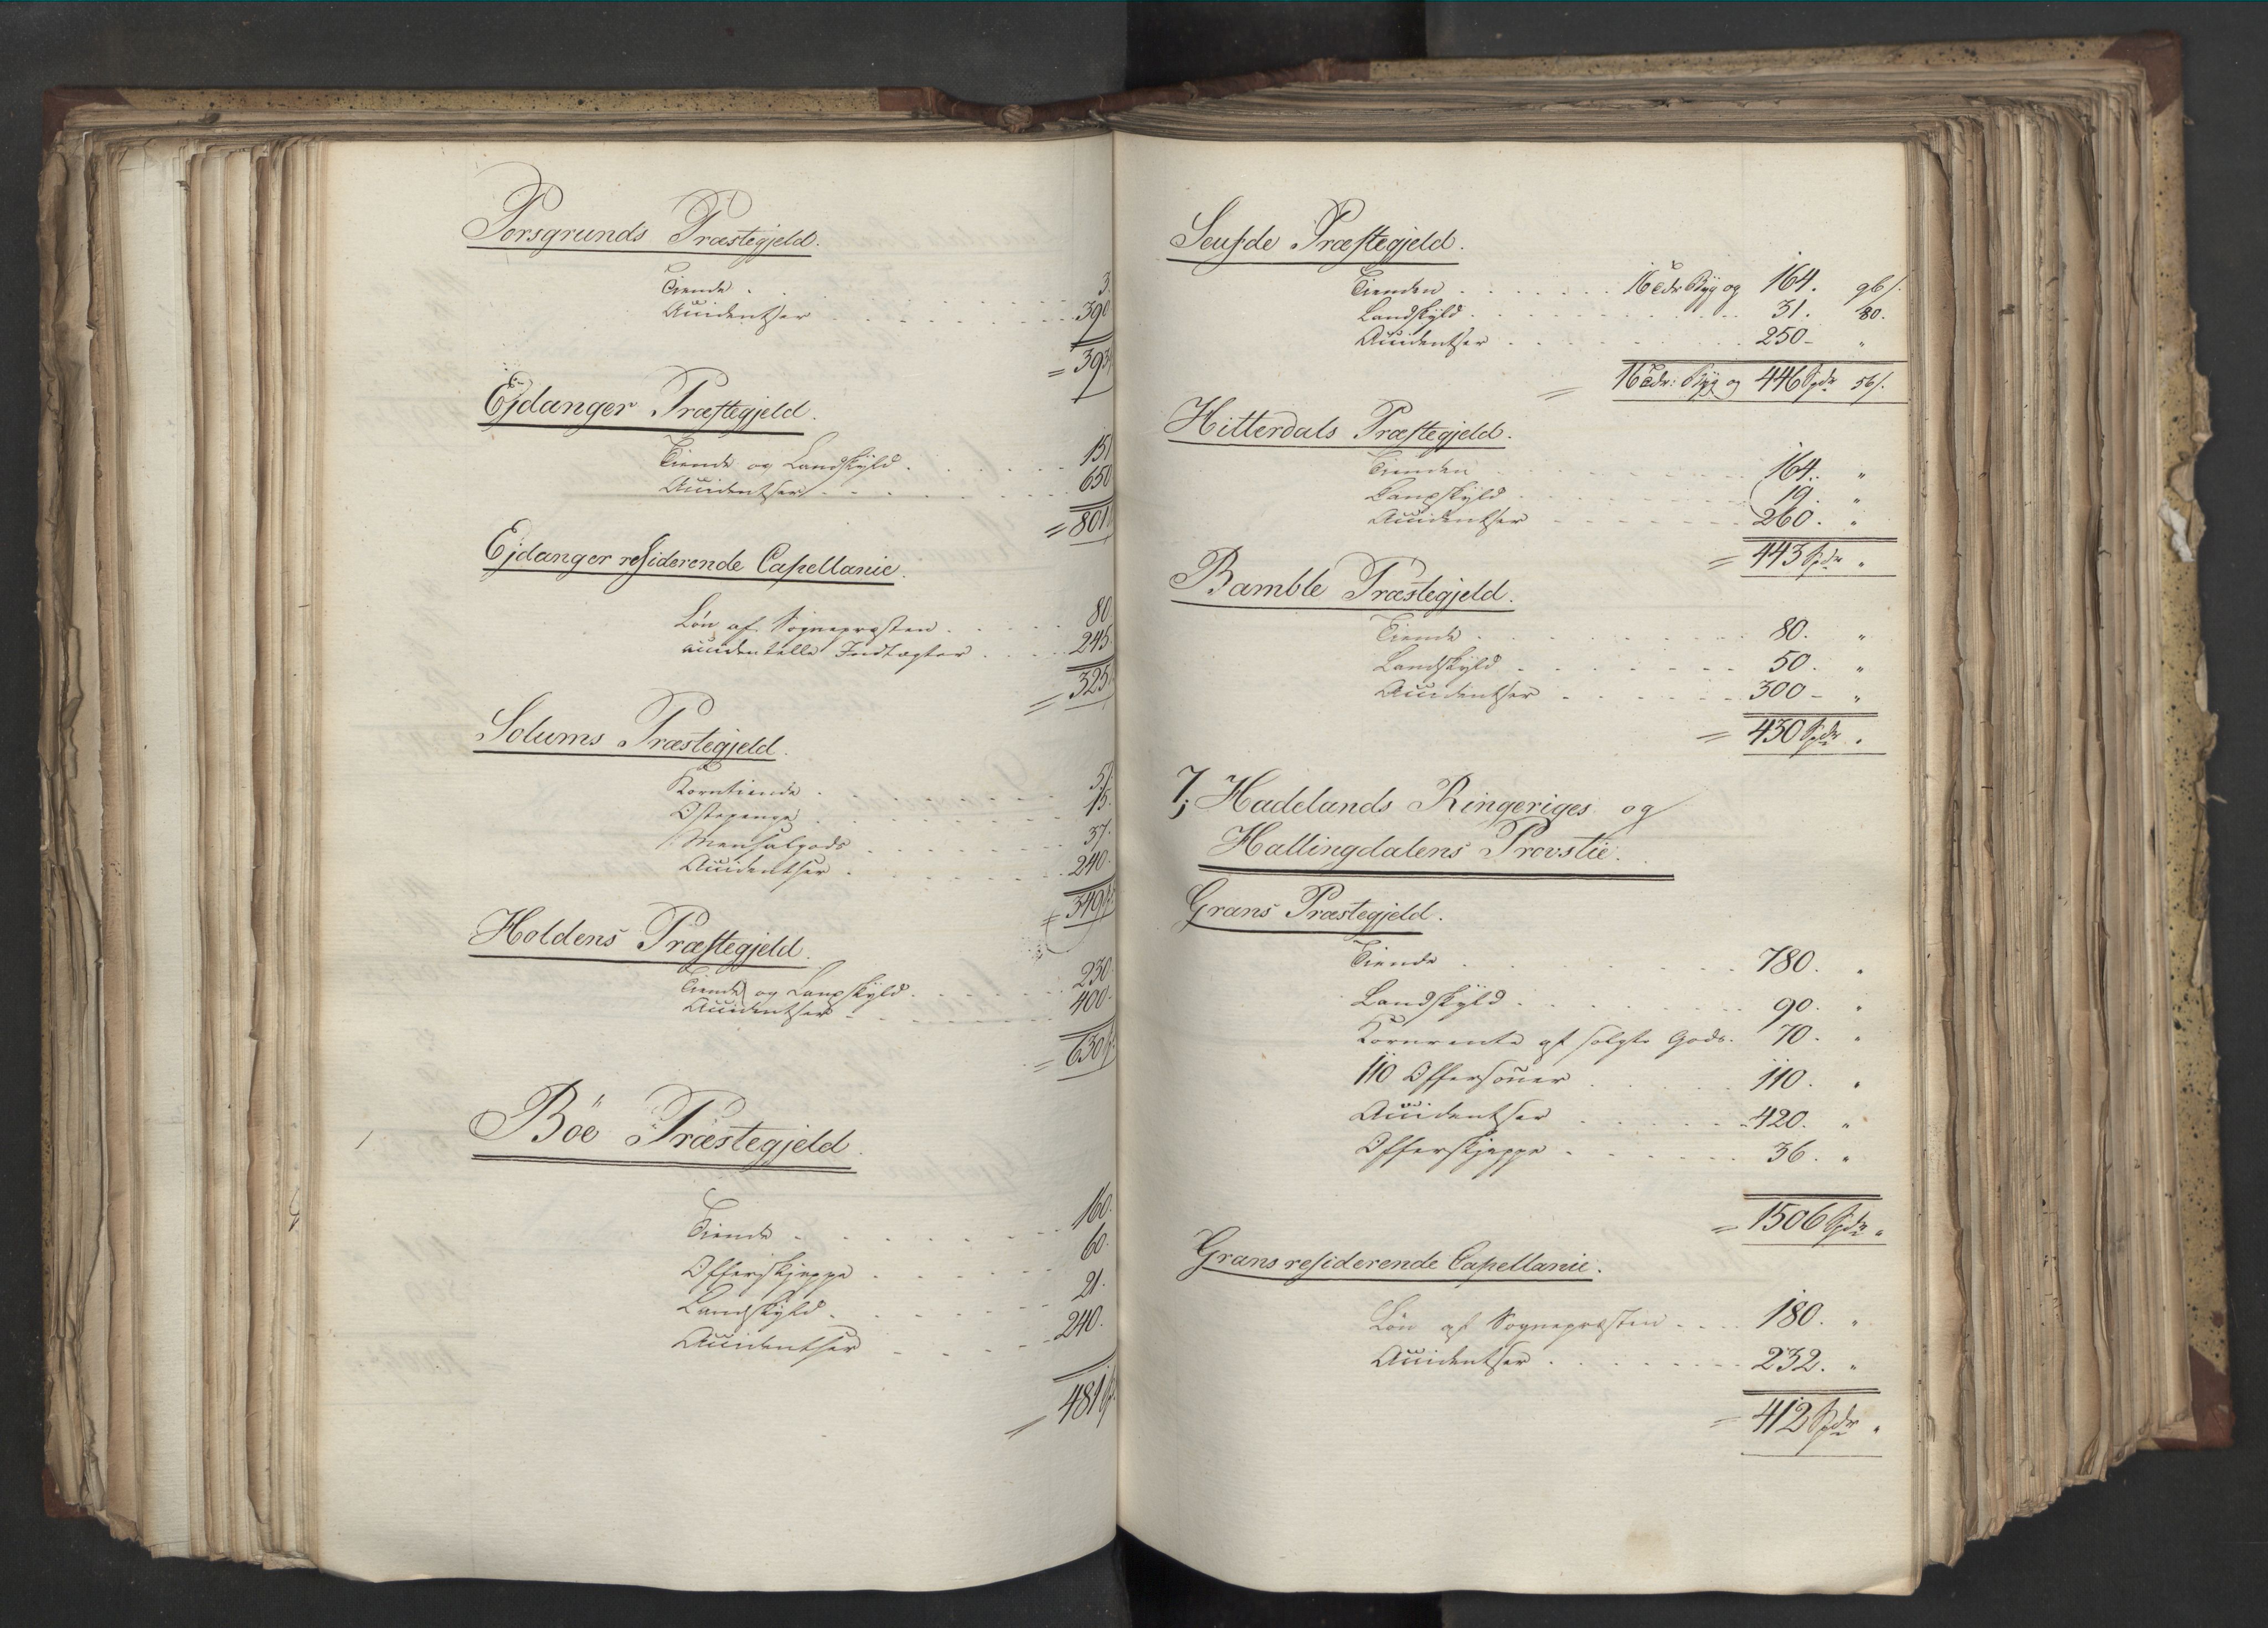 Porsgrunds Præstegjeld.
Tiende . 3.
Accidentser . . . . . . 390
= 393
Ejdanger Præstegjeld.
Tiende og Landskyld . . . . 151
Accidentser . . . . . 650
= 801
Ejdanger residerende Capellanie.
Løn af Sognepræsten . . . 80.
accidentelle Indtægter . . . 245.
= 325
Solums Præstegjeld.
Korntiende . . . . .
Ostepenge . . . . . 15.
Mensalgods . . . . . 37.
Accidentser . . . . . 240.
= 349
Holdens Præstegjeld.
Tiende og Landskyld . . . . 230.
Accidentser . . . . . 400.
= 630
Böe Præstegjeld.
Tiende . . . . . 160.
Offerskjeppe . . . . 60.
Landskyld . . . . 21.
Accidentser . . . . 240.
= 481
Seufde Præstegjeld.
Tienden . . . . . 16 Tdr Byg og 164. 96 s.
Landskyld . . . . . 31. 80.
Accidentser . . . . . 250 - "
= 16 Tdr: Byg og 446 Spdr 56 s.
Hitterdals Præstegjeld.
Tienden . . . . . 164. "
Landskyld . . . . . 19. "
Accidentser . . . . . 260. "
= 443 Spdr "
Bamble Præstegjeld.
Tiende . . . . . 80. "
Landskyld . . . . . 50. "
Accidentser . . . . . 300 - "
= 430 Spdr .
7; Hadelands Ringeriges og
Hallingdalens Provstie.
Grans Præstegjeld.
Tiende . . . . . 780. "
Landskyld . . . . . 90. "
Kornrente af solgte Gods. 70. "
110 Offersouer . . . . 110. "
Accidentser . . . . . 420. "
Offerskjeppe . . . . . 36. "
= 1506 Spdr "
Grans residerende Capellanie.
Løn af Sognepræsten . . . 180. "
Accidentser . . . . . 232. "
= 412 Spdr "